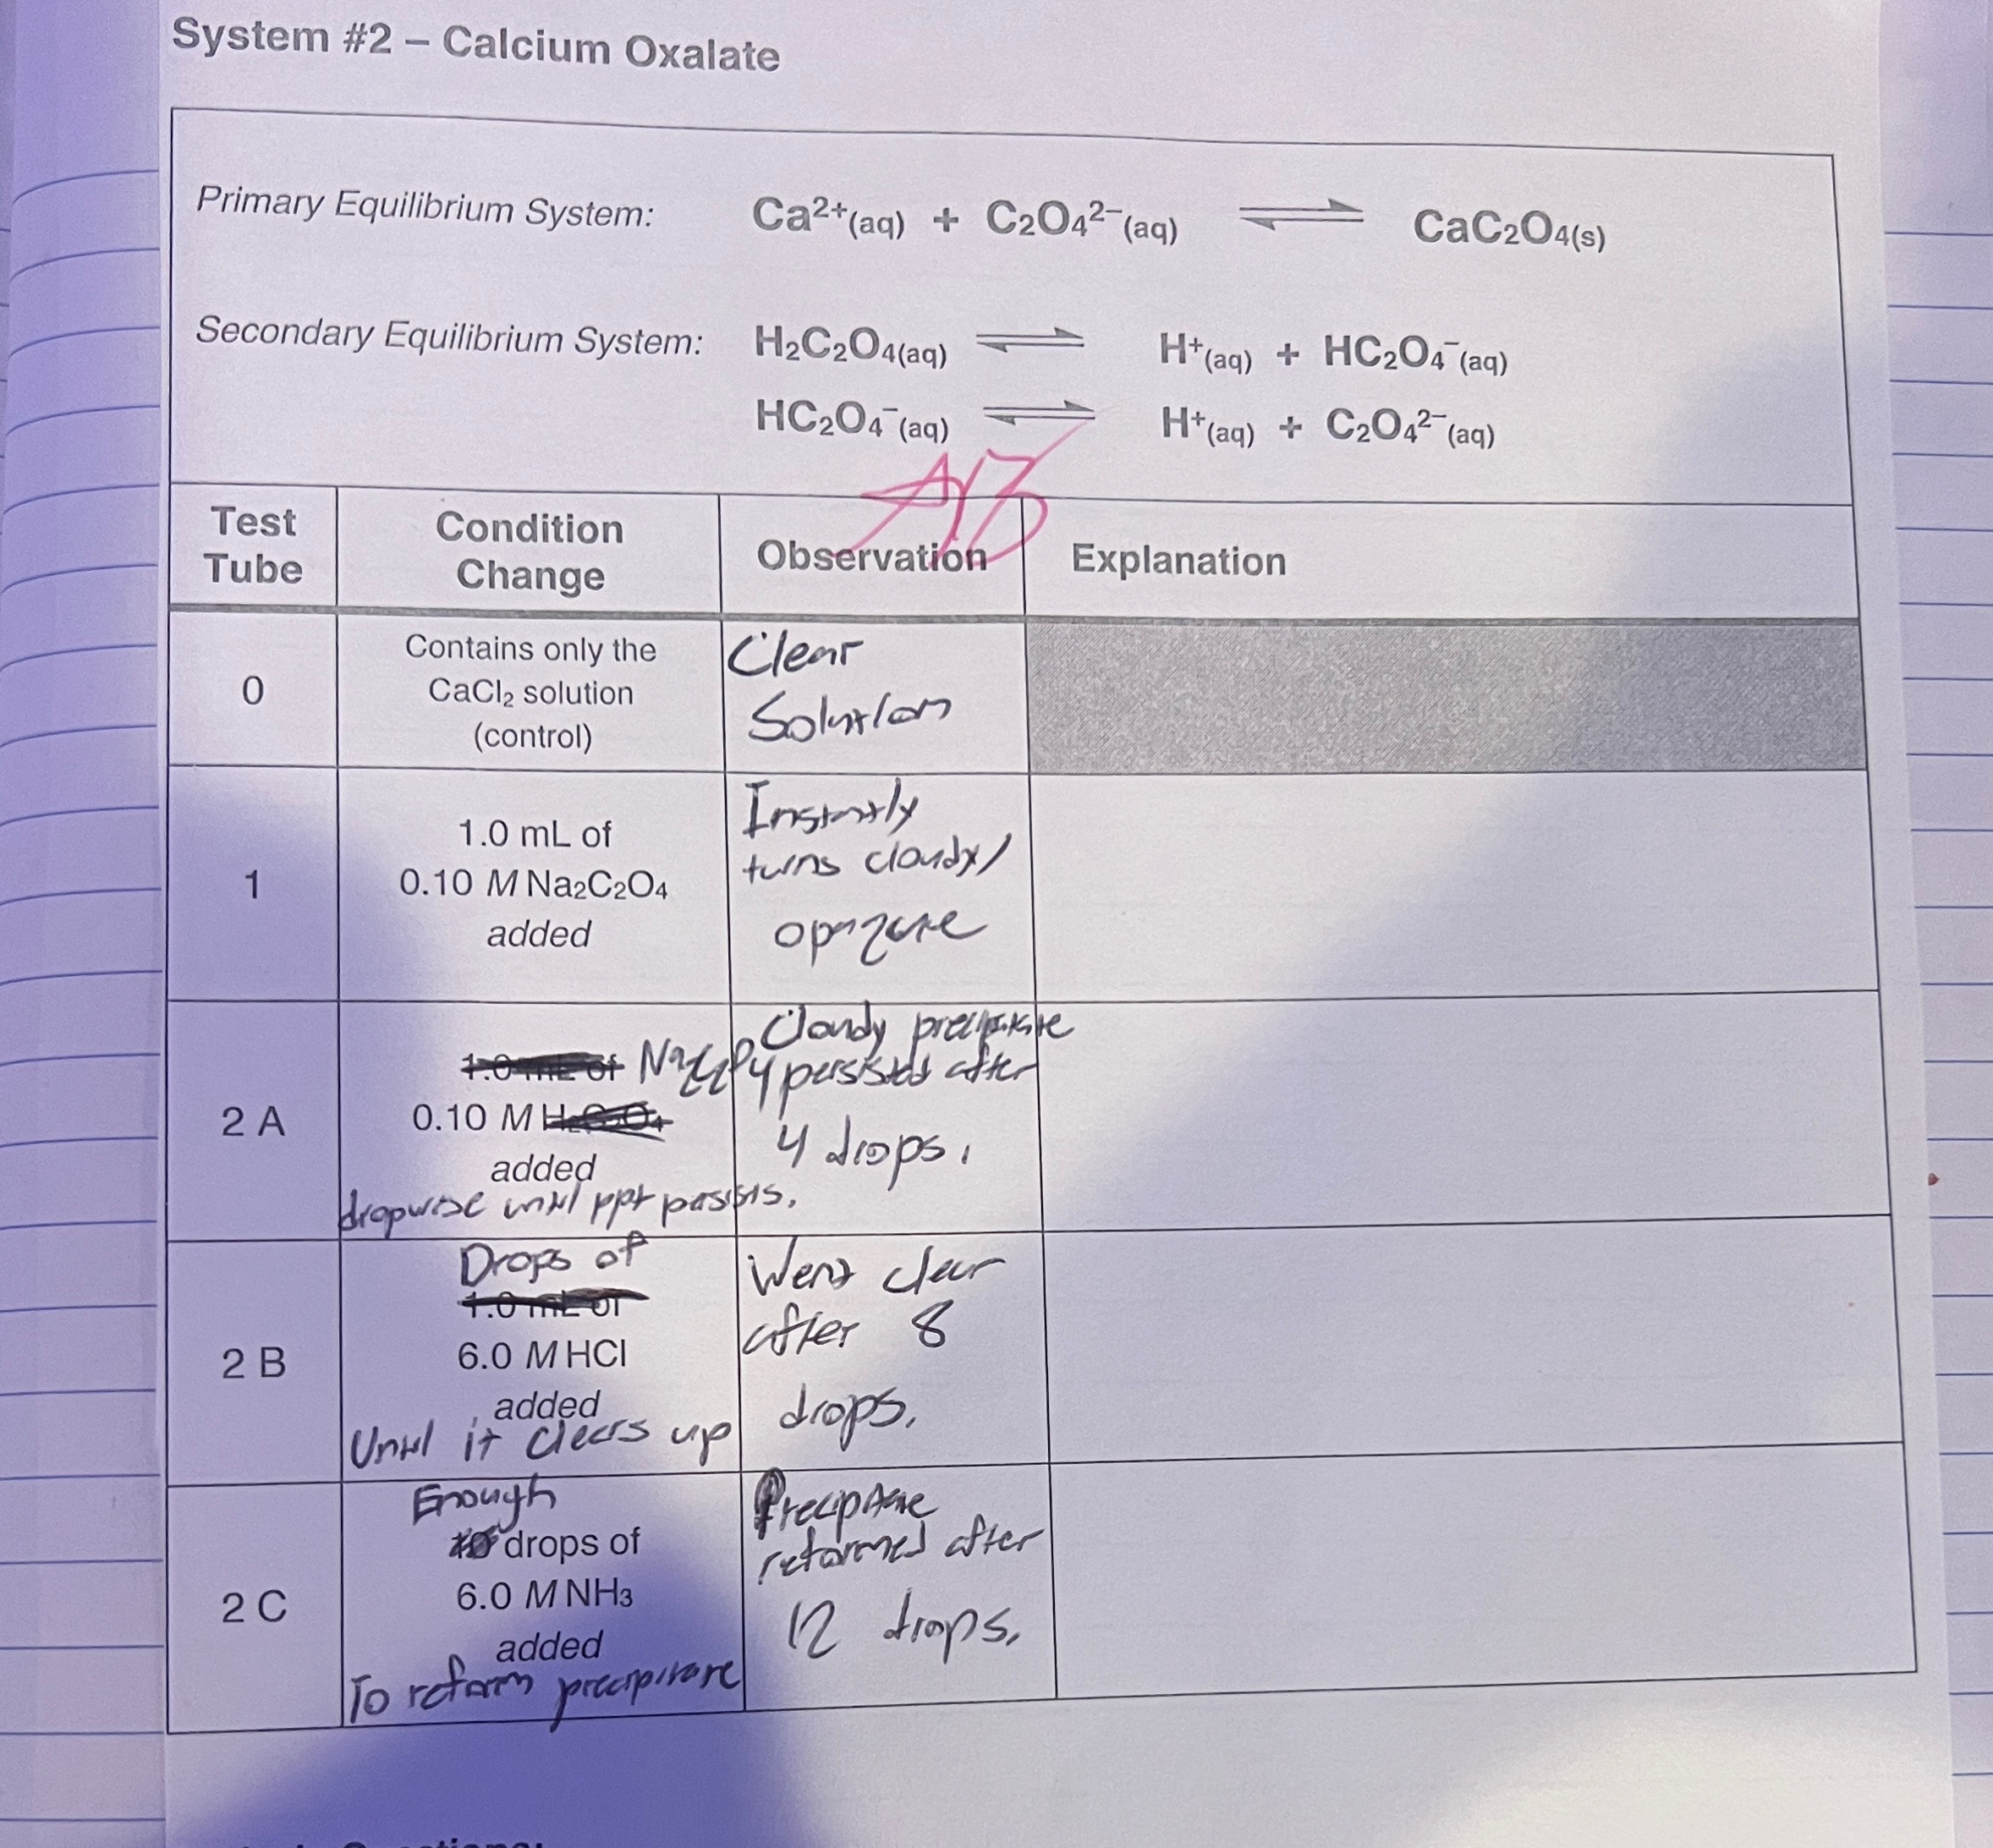 System #2 – Calcium Oxalate
Primary Equilibrium System: Ca²⁺(aq) + C₂O₄²⁻(aq) ⇌ CaC₂O₄(s)
Secondary Equilibrium System: H₂C₂O₄(aq) ⇌ H⁺(aq) + HC₂O₄⁻(aq)
HC₂O₄⁻(aq) ⇌ H⁺(aq) + C₂O₄²⁻(aq)
Test
Tube
Condition
Change
Observation
Explanation
0
Contains only the
CaCl₂ solution
(control)
Clear
Solution
1
1.0 mL of
0.10 M Na₂C₂O₄
added
Instantly
turns cloudy/
opaque
2 A
1.0 mL of Na₂C₂O₄
0.10 M H₂C₂O₄
added
dropwise until ppt persists.
Cloudy precipitate
persisted after
4 drops.
2 B
Drops of
1.0 mL of
6.0 M HCl
added
Until it clears up
Went clear
after 8
drops.
2 C
Enough
drops of
6.0 M NH₃
added
To reform precipitate
Precipitate
reformed after
12 drops.